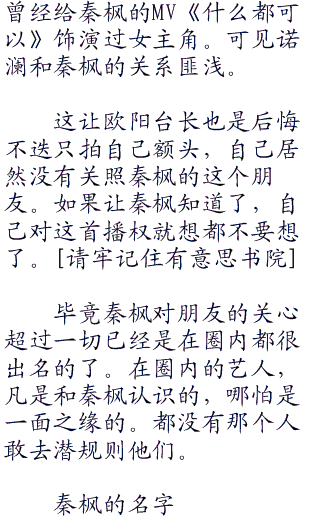 曾经给秦枫的MV《什么都可
以》饰演过女主角。可见诺
澜和秦枫的关系匪浅。
这让欧阳台长也是后悔
不迭只拍自己额头，自己居
然没有关照秦枫的这个朋
友。如果让秦枫知道了，自
己对这首播权就想都不要想
了。[请牢记住有意思书院]
毕竟秦枫对朋友的关心
超过一切已经是在圈内都很
出名的了。在圈内的艺人，
凡是和秦枫认识的，哪怕是
一面之缘的。都没有那个人
敢去潜规则他们。
秦枫的名字